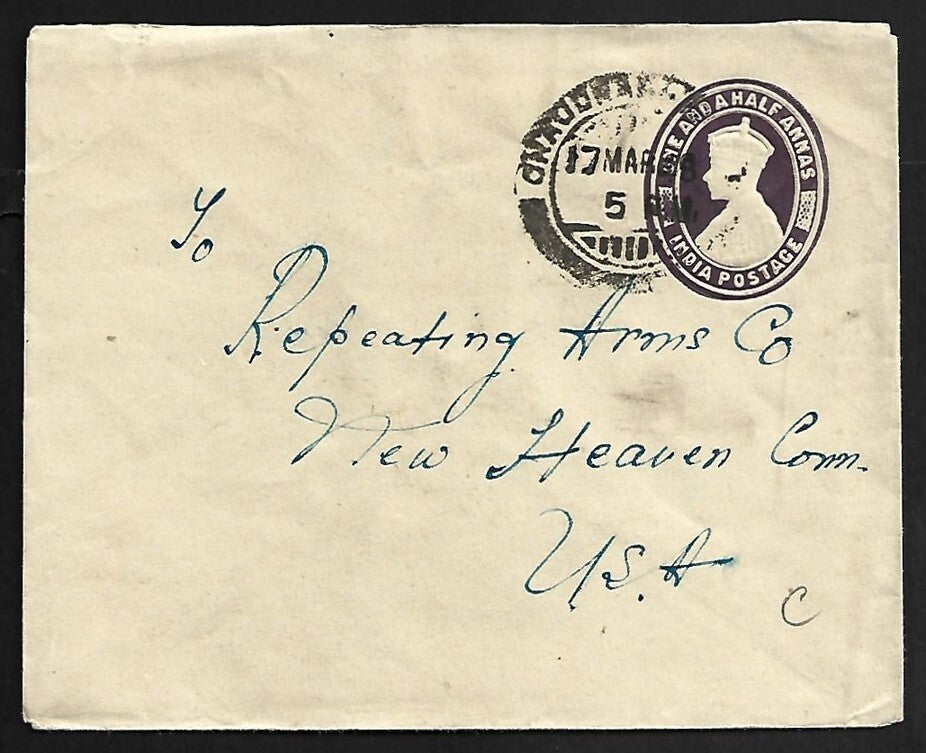 ONE AND A HALF ANNAS
INDIA POSTAGE
17 MAR 
5 
To
Repeating Arms Co
New Heaven Conn.
U.S.A
C